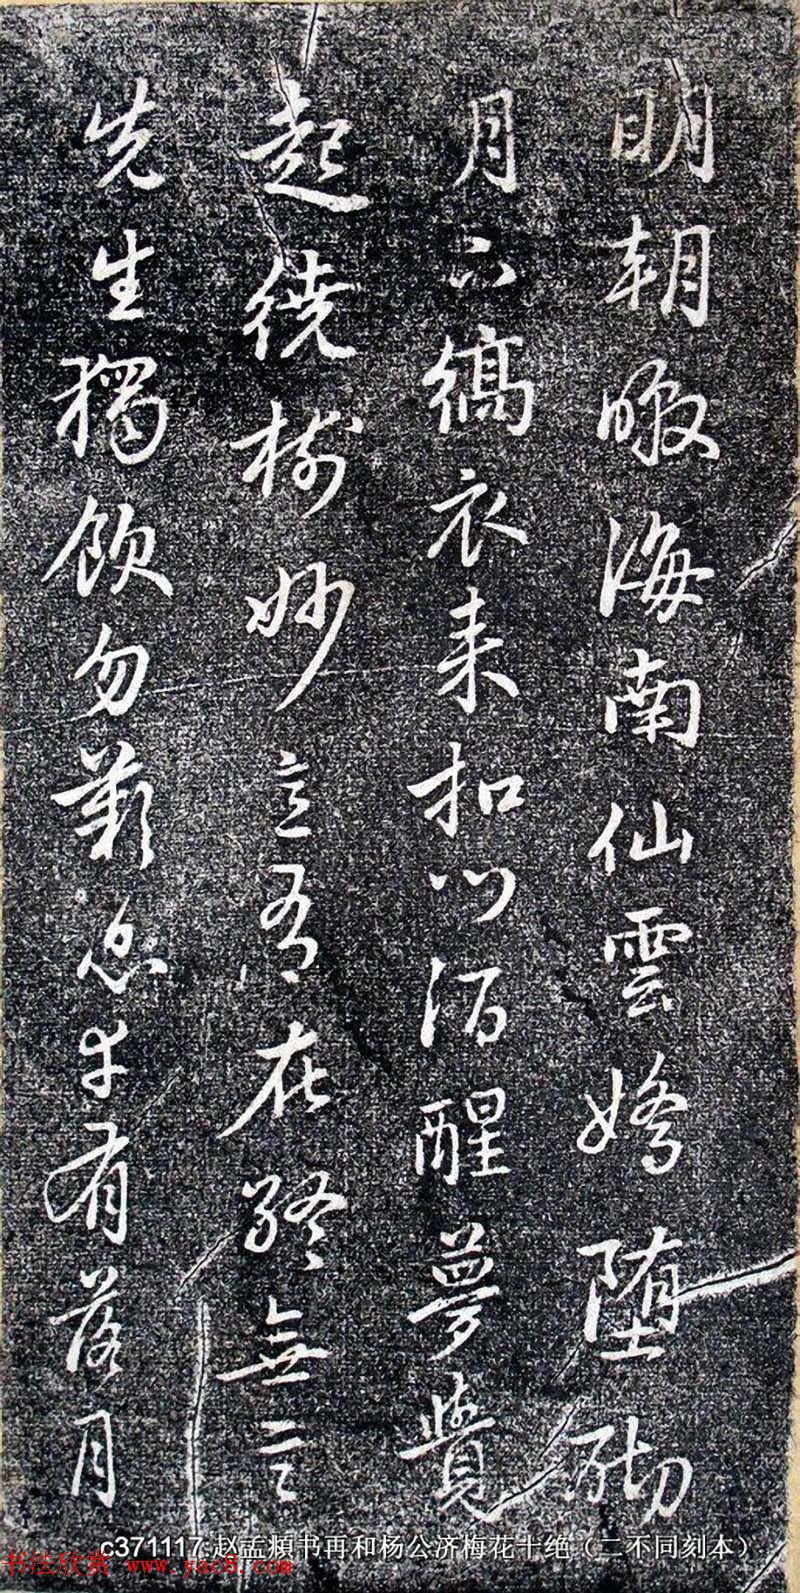 明朝暾海南仙雲嬌堕砌
月下縞衣来扣門酒醒夢覺
起繞樹妙意有在終無言
先生獨飲勿歎息幸有落月
c371117.赵孟頫书再和杨公济梅花十绝（二不同刻本）
书法欣赏 www.yac8.com